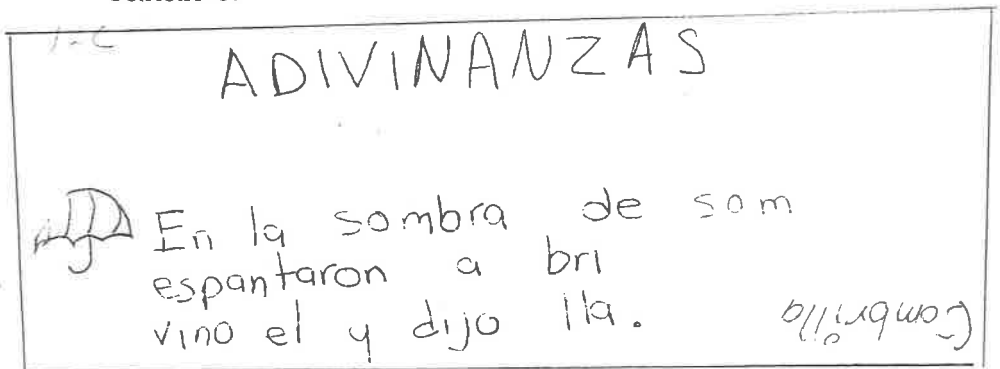 1-C
ADIVINANZAS
En la sombra de som
espantaron a bri
vino el y dijo lla.
Combrilla